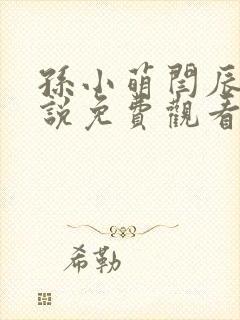 孫小萌閆辰
說免費觀看
希勒